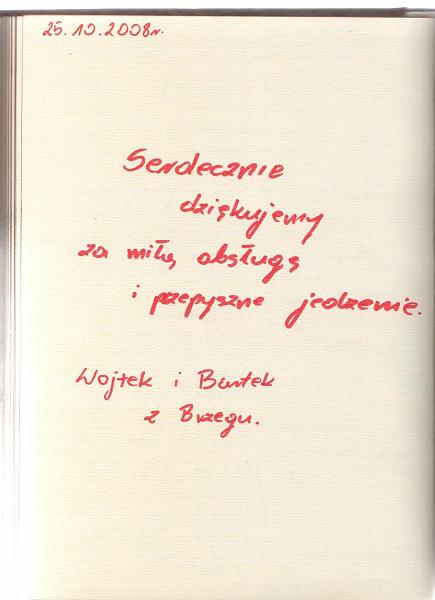 25.10.2008r.
Serdecznie
dziękujemy
za miłą obsługę
i przepyszne jedzenie.
Wojtek i Bartek
z Brzegu.